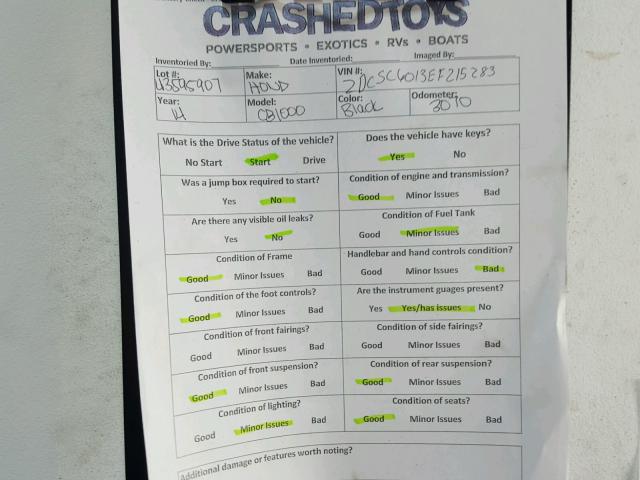 CRASHEDTOYS
POWERSPORTS • EXOTICS • RVs • BOATS
Inventoried By: Date Inventoried: Imaged By:
Lot #: 43595907 Make: HOND VIN #:
Year: 14 Model: CB1000 Color: Black Odometer: 3070
What is the Drive Status of the vehicle? Does the vehicle have keys?
No Start Start Drive Yes No
Was a jump box required to start? Condition of engine and transmission?
Yes No Good Minor Issues Bad
Are there any visible oil leaks? Condition of Fuel Tank
Yes No Good Minor Issues Bad
Condition of Frame Handlebar and hand controls condition?
Good Minor Issues Bad Good Minor Issues Bad
Condition of the foot controls? Are the instrument guages present?
Good Minor Issues Bad Yes Yes/has issues No
Condition of front fairings? Condition of side fairings?
Good Minor Issues Bad Good Minor Issues Bad
Condition of front suspension? Condition of rear suspension?
Good Minor Issues Bad Good Minor Issues Bad
Condition of lighting? Condition of seats?
Good Minor Issues Bad Good Minor Issues Bad
Additional damage or features worth noting?